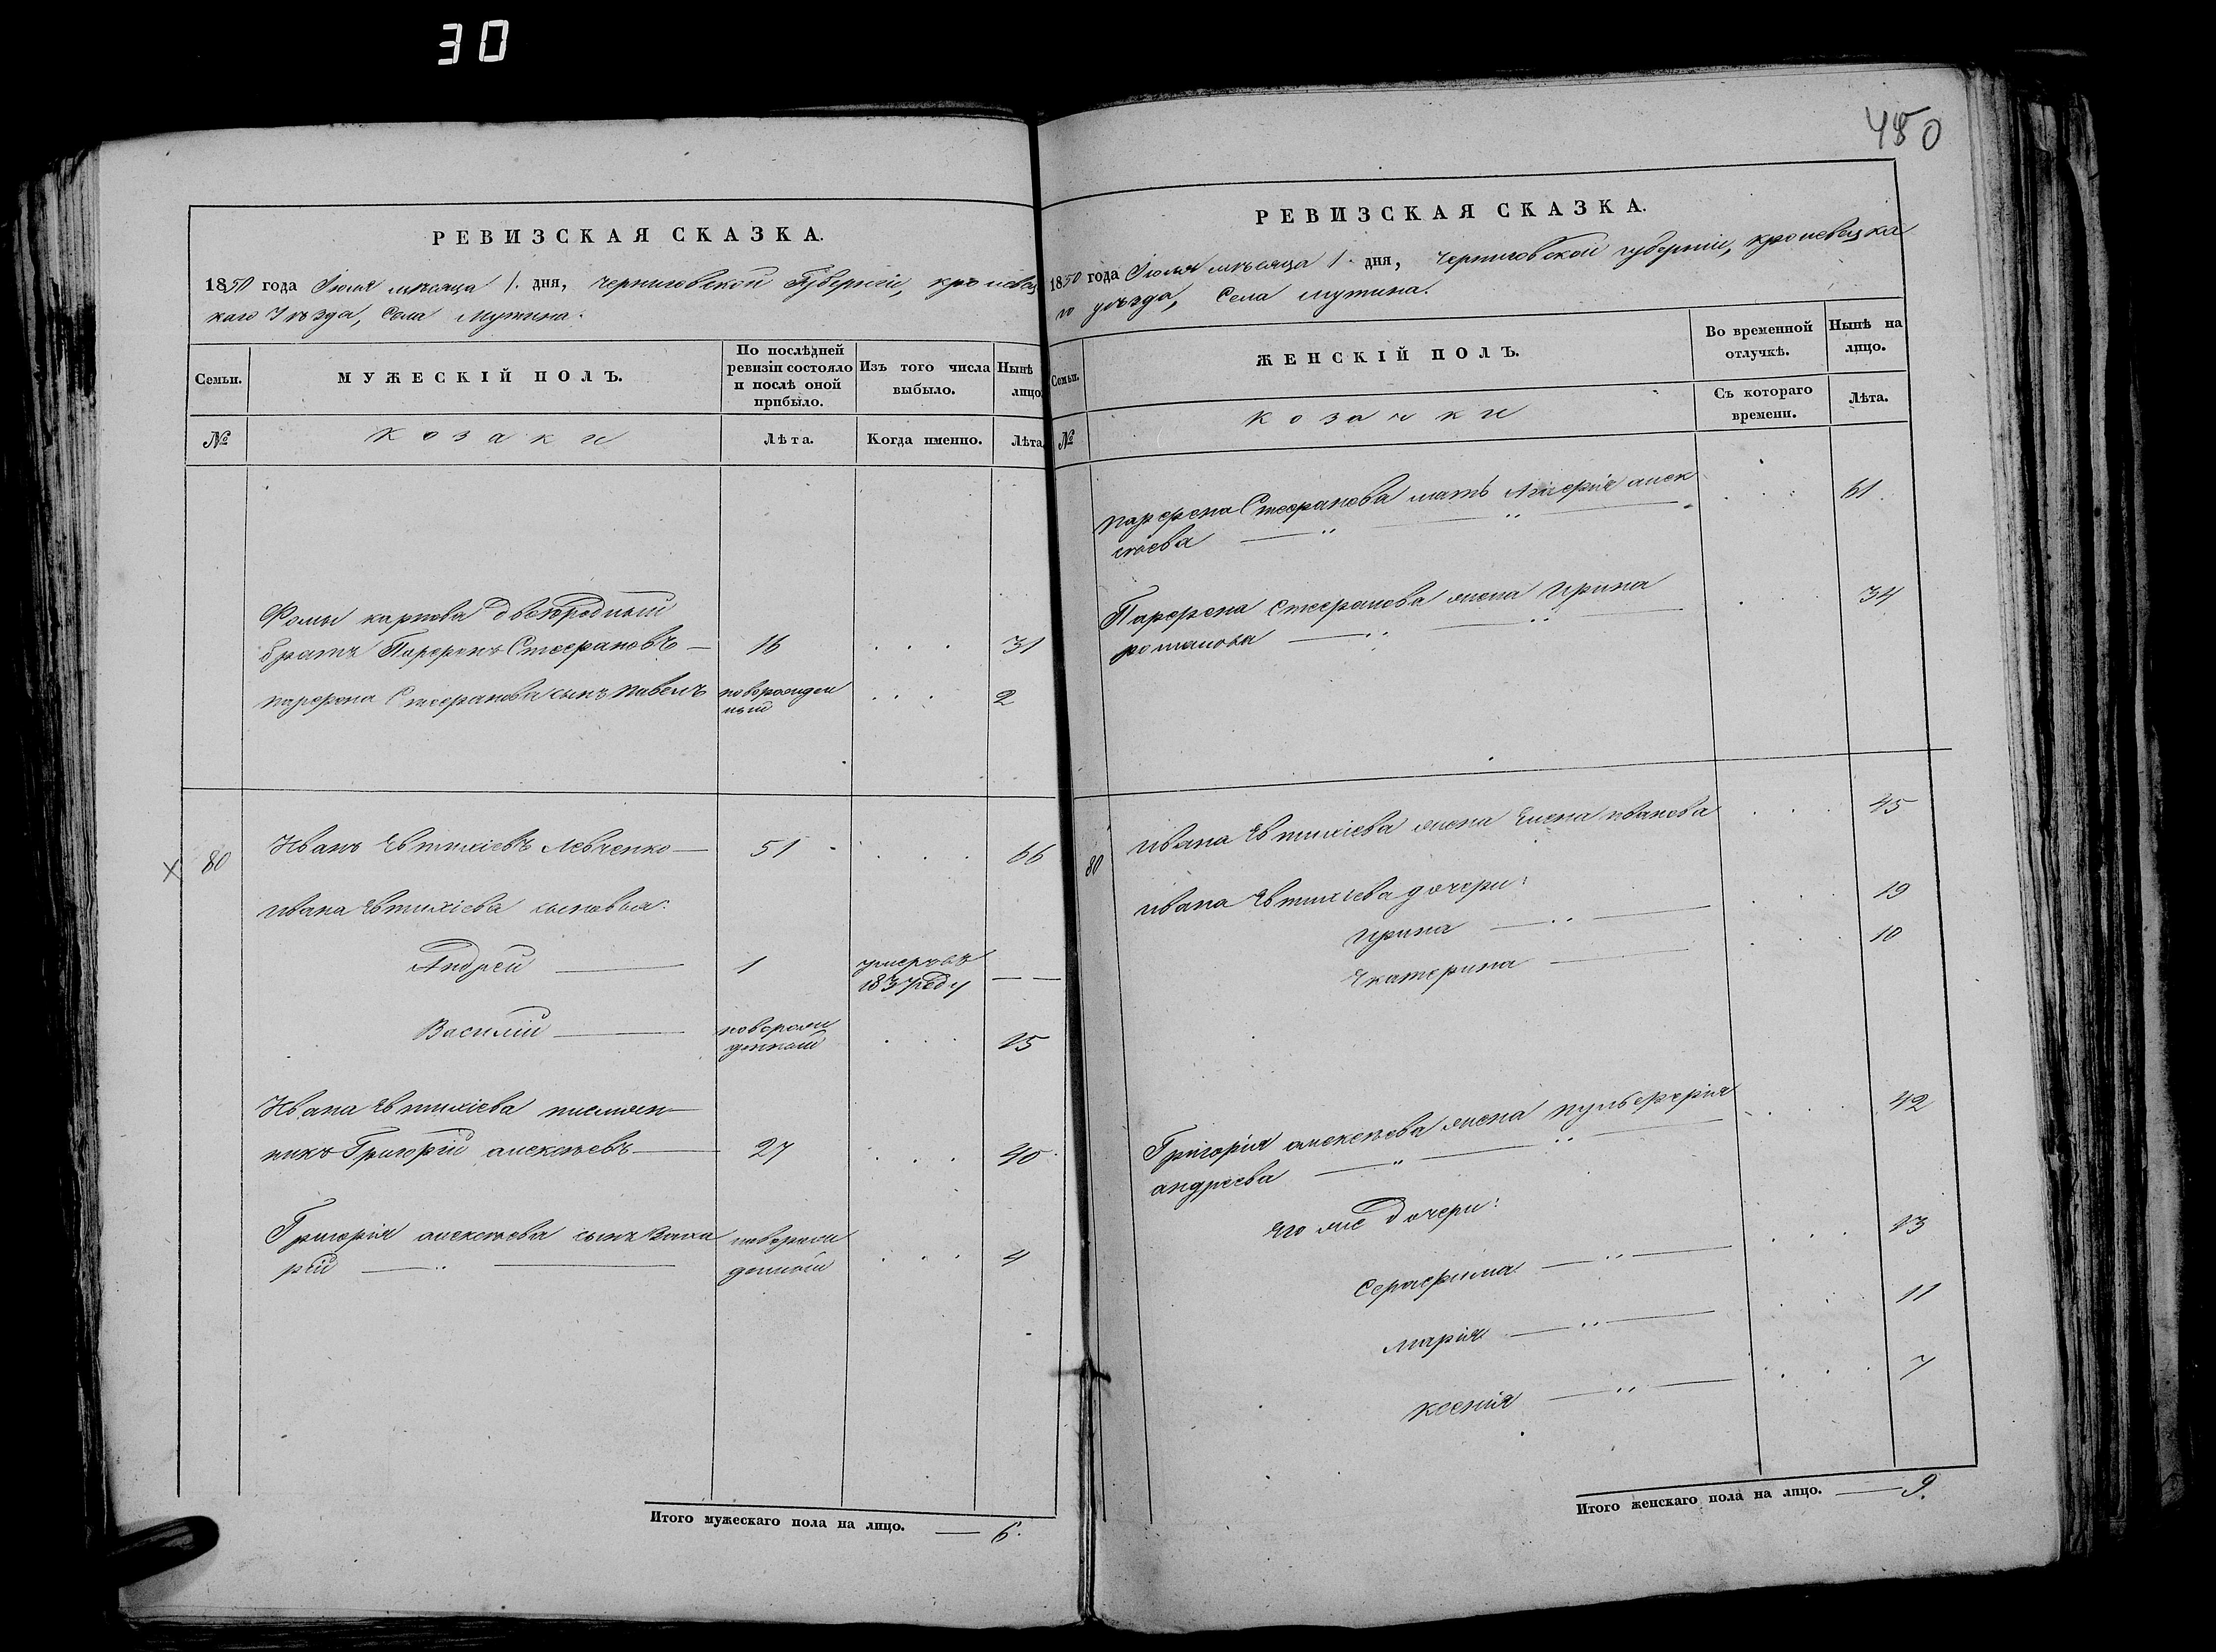 30
450
РЕВИЗСКАЯ СКАЗКА.
1850 года Іюля мѣсяца 1. дня, Черниговской Губерніи, кролевец
каго Уѣзда, Села Мутина.
Семьи.
МУЖЕСКІЙ ПОЛЪ.
По послѣдней
ревизіи состояло
и послѣ оной
прибыло.
Изъ того числа
выбыло.
Нынѣ
лицо
№
козаки
Лѣта.
Когда именно.
Лѣта
Фомы карпова двоюродный
братъ Парфенъ Стефановъ — 16 . . . 31
парфена Стефанова сынъ павелъ новорожден . . . 2
ный
80 Иванъ Евтихіевъ Левченко — 51 . . . 66
ивана Евтихіева сыновья:
Андрей — 1 умеръ въ — —
1837 году
Василій — новорож
денный . . . 15
Ивана Евтихіева племян-
никъ Григорій алексѣевъ — 27 . . . 40
Григорія алексѣева сынъ Заха новорож
рій — " — денный . . . 4
Итого мужескаго пола на лицо. — 6.
РЕВИЗСКАЯ СКАЗКА.
1850 года Іюля мѣсяца 1. дня, Черниговской губерніи, кролевецка
го уѣзда, Села мутина.
Семьи.
ЖЕНСКІЙ ПОЛЪ.
Во временной
отлучкѣ.
Нынѣ на
лицо.
№
козачки
Съ котораго
времени.
Лѣта.
парфена Стефанова мать алек . . . 61.
сѣева — " — "
Парфена стефанова жена Ирина . . . 34
романова — " — "
80 ивана Евтихіева жена Елена иванова . . . 45
ивана Евтихіева дочери:
Ирина — " — . . . 19
Екатерина — . . . 10
Григорія алексѣева жена пульферія . . . 42
андреева — " — " —
Его же дочери:
Серафима — " — . . . 13
марія — " — . . . 11
ксенія — " — . . . 7
Итого женскаго пола на лицо. — 9.